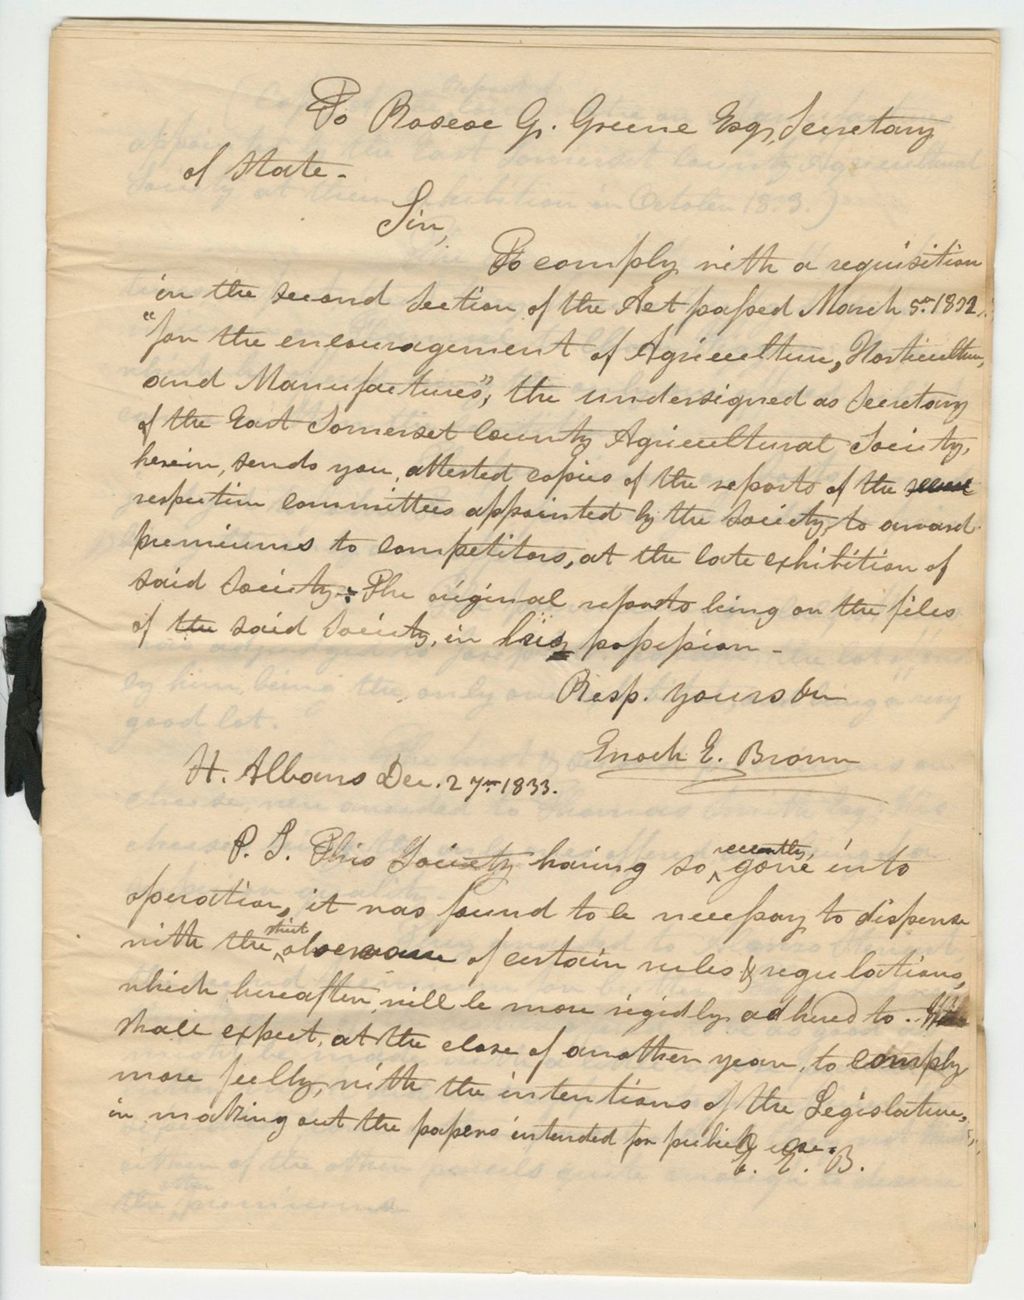 To Roscoe G. Greene Esq, Secretary
of State -
Sir,
To comply with a requisition
in the second section of the Act passed March 5th 1832,
"for the encouragement of Agriculture, Horticulture,
and Manufactures", the undersigned as Secretary
of the East Somerset County Agricultural Society,
herein, sends you attested copies of the reports of the
respective committees appointed by the Society to award
premiums to competitors, at the late exhibition of
said Society. The original reports being on the files
of the said Society, in his possession -
Resp. yours &c
Enoch E. Brown
St. Albans Dec. 27th 1833.
P. S. This Society having so recently gone into
operation, it was found to be necessary to dispense
with the strict observance of certain rules & regulations,
which hereafter will be more rigidly adhered to.
shall expect, at the close of another year, to comply
more fully, with the intentions of the Legislature,
in making out the papers intended for publick use.
E. E. B.